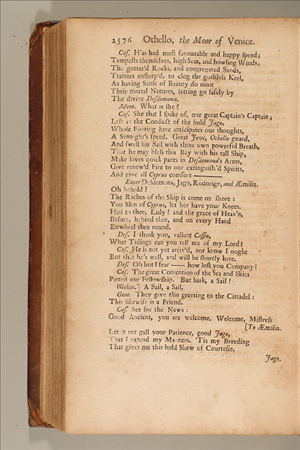 2576 Othello, the Moor of Venice.
Cas. H'as had most favourable and happy speed;
Tempests themselves, high Seas, and howling Winds,
The gutter'd Rocks, and congregated Sands,
Traitors ensteep'd, to clog the guiltless Keel,
As having Sense of Beauty do omit
Their mortal Natures, letting go safely by
The divine Desdemona.
Mont. What is she?
Cas. She that I spake of, our great Captain's Captain;
Left in the Conduct of the bold Jago,
Whose Footing here anticipates our thoughts,
A Sennight's speed. Great Jove, Othello guard,
And swell his Sail with thine own powerful Breath,
That he may bless this Bay with his tall Ship,
Make loves quick pants in Desdemona's Arms,
Give renew'd Fire to our extinguish'd Spirits,
And give all Cyprus comfort ——
Enter Desdemona, Jago, Rodorigo, and Æmilia.
Oh behold!
The Riches of the Ship is come on shore:
You Men of Cyprus, let her have your Knees.
Hail to thee, Lady! and the grace of Heav'n,
Before, behind thee, and on every Hand
Enwheel thee round.
Des. I thank you, valiant Cassio,
What Tidings can you tell me of my Lord?
Cas. He is not yet arriv'd, nor know I ought
But that he's well, and will be shortly here.
Des. Oh but I fear —— how lost you Company?
Cas. The great Contention of the Sea and Skies
Parted our Fellowship. But hark, a Sail!
Within.] A Sail, a Sail.
Gent. They give this greeting to the Cittadel:
This likewise is a Friend.
Cas. See for the News:
Good Ancient, you are welcome. Welcome, Mistress
[To Æmilia.
Let it not gall your Patience, good Jago,
That I extend my Manners. 'Tis my Breeding
That gives me this bold Shew of Courtesie.
Jago.